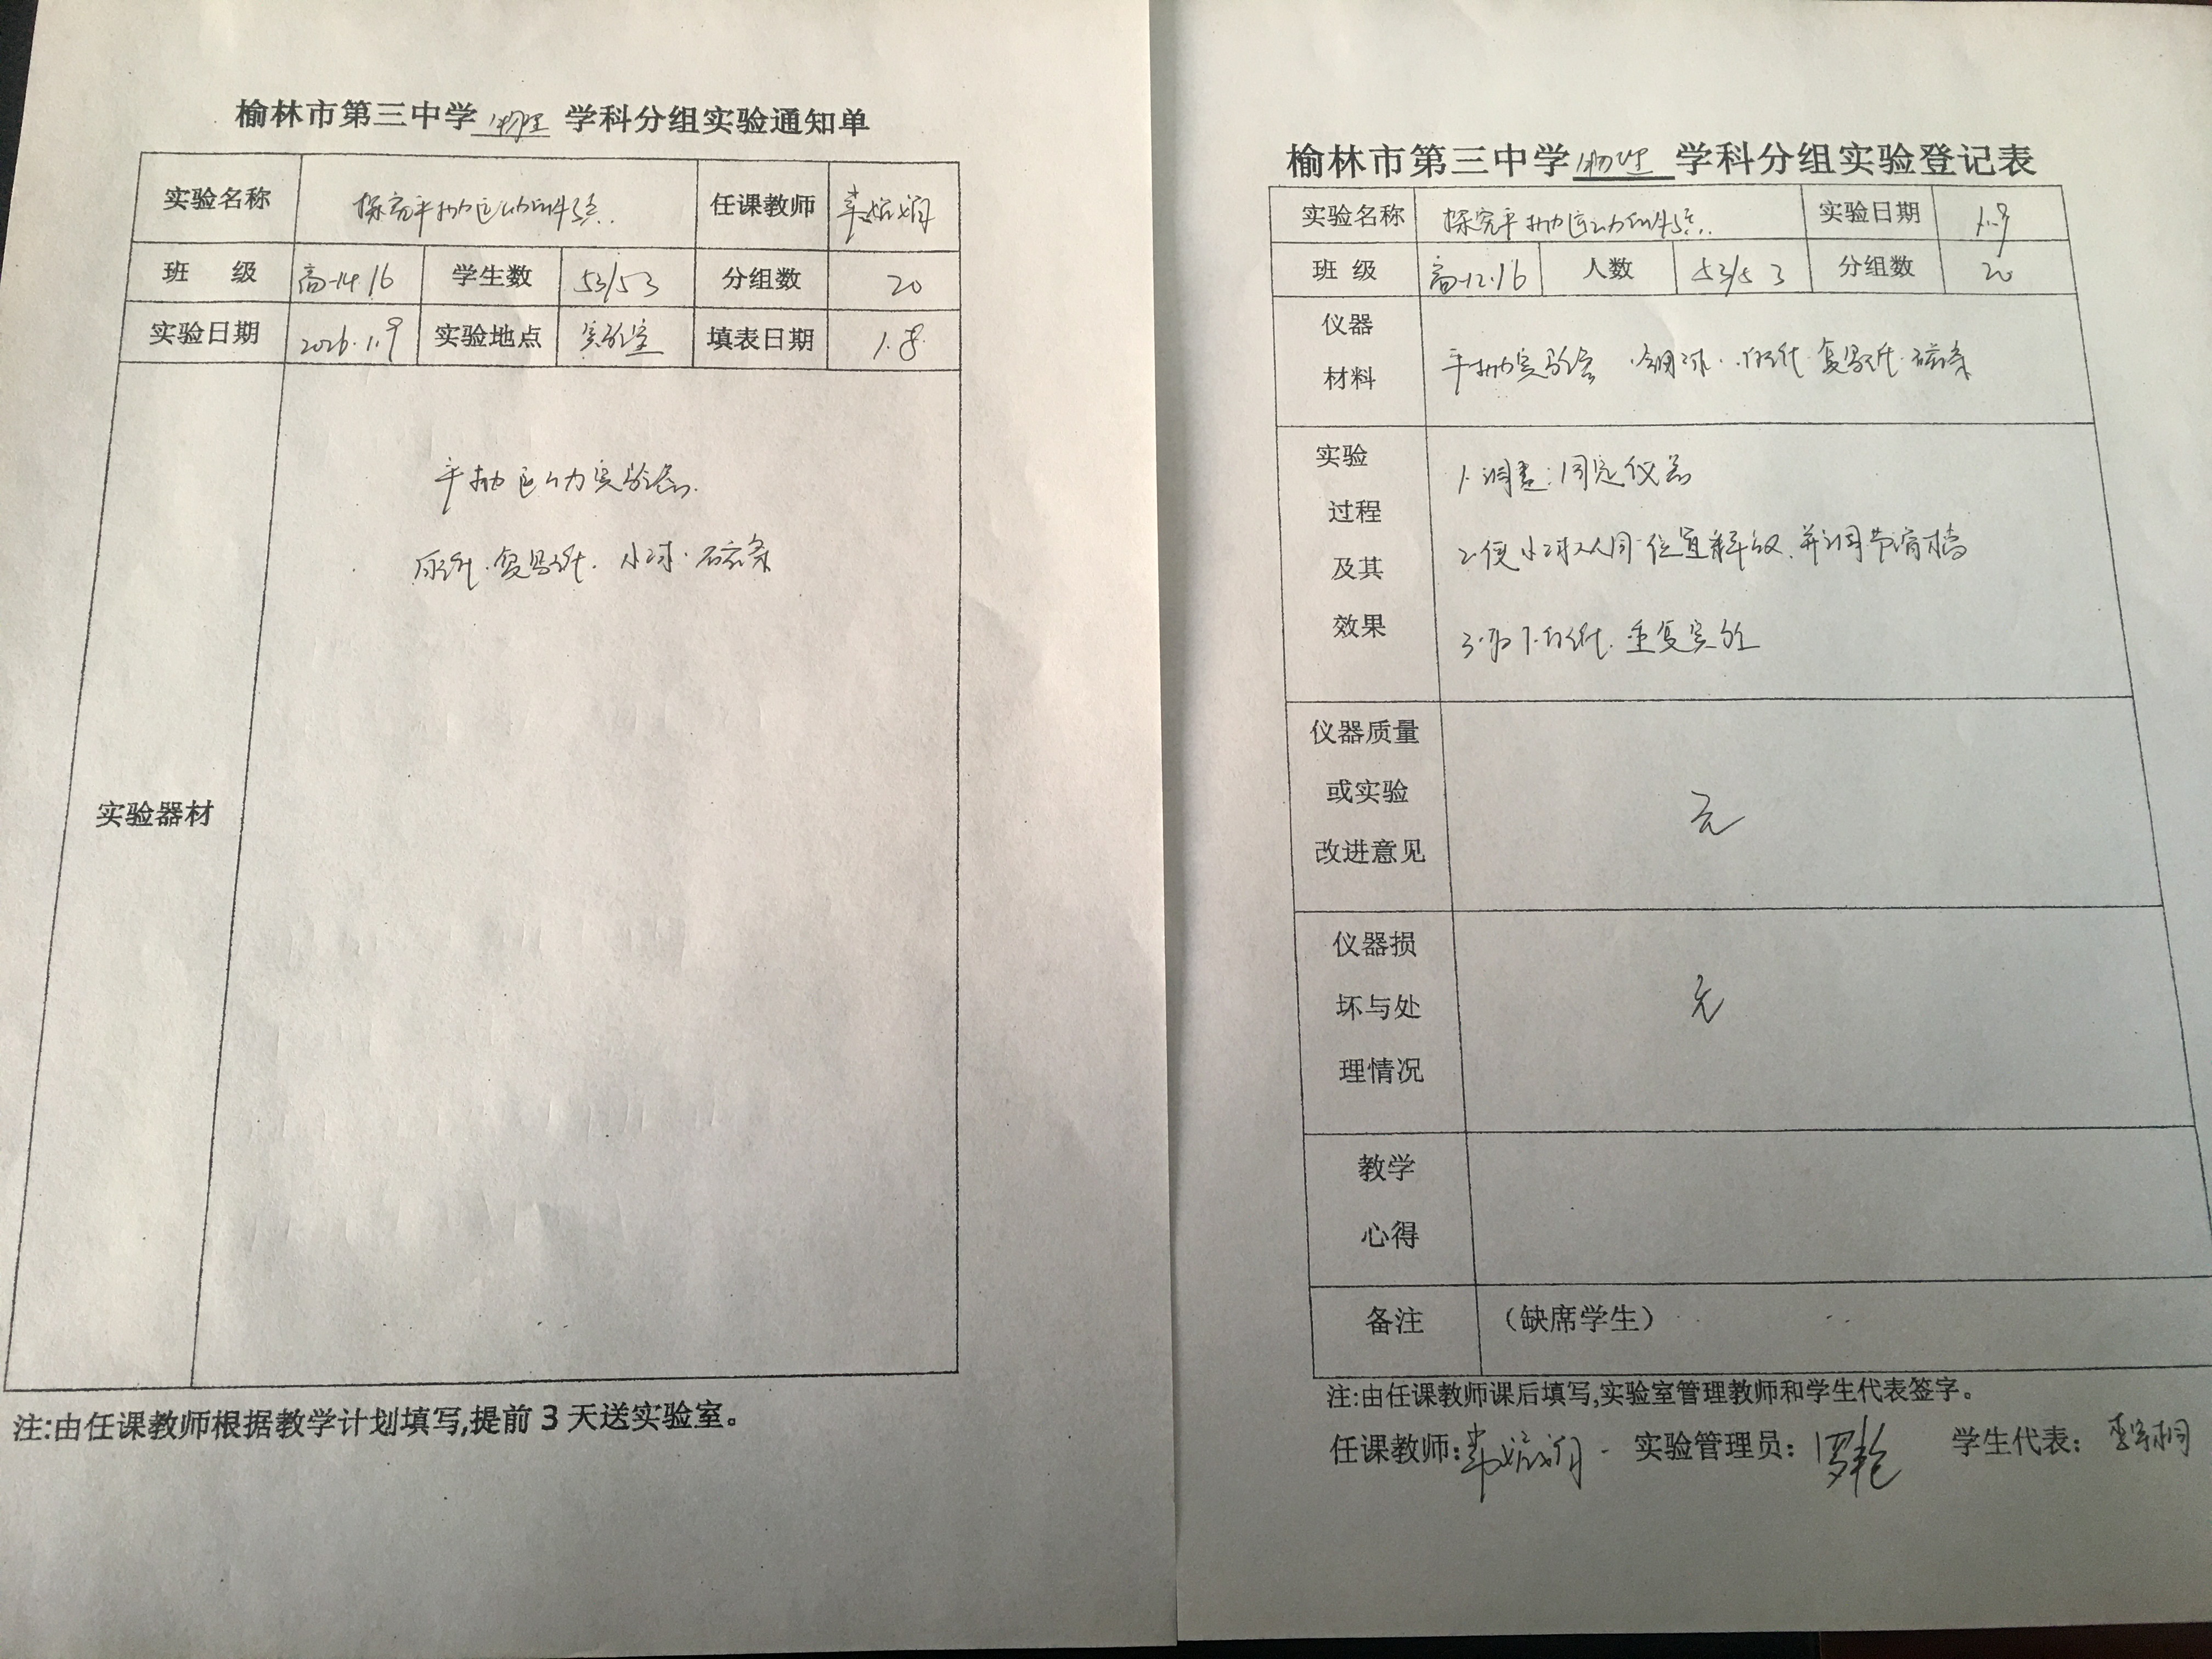 榆林市第三中学 物理 学科分组实验通知单
实验名称 探究平抛运动的特点. 任课教师
班 级 高一14 16 学生数 53/53 分组数 20
实验日期 2026.1.9 实验地点 实验室 填表日期 1.8.
实验器材
平抛运动实验器.
白纸.复写纸.小球.磁条
注:由任课教师根据教学计划填写,提前3天送实验室。
榆林市第三中学 物理 学科分组实验登记表
实验名称 探究平抛运动的特点. 实验日期 1.9
班 级 高一12.16 人数 53/53 分组数 20
仪器
材料
平抛实验器 钢球.白纸.复写纸.磁条
实验
过程
及其
效果
1.调整:固定仪器
2.使小球从同一位置释放.并调节滑档
3.取下白纸.重复实验
仪器质量
或实验
改进意见
无
仪器损
坏与处
理情况
无
教学
心得
备注 (缺席学生)
注:由任课教师课后填写,实验室管理教师和学生代表签字。
任课教师: 实验管理员: 学生代表: